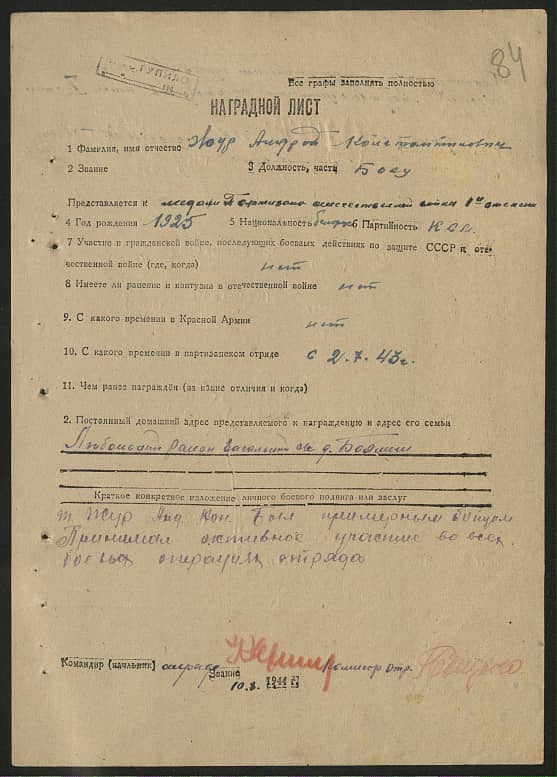 84
ПОСТУПИЛО
Все графы заполнять полностью
НАГРАДНОЙ ЛИСТ
1 Фамилия, имя отчество Жур Андрей Константинович
2 Звание 3 Должность, часть Боец
Представляется к медали Партизана отечественной войны 1й степени
4 Год рождения 1925 5 Национальность белорус 6 Партийность
7 Участие в гражданской войне, последующих боевых действиях по защите СССР и оте-
чественной войне (где, когда) нет
8 Имеете ли ранение и контузии в отечественной войне нет
9. С какого времени в Красной Армии нет
10. С какого времени в партизанском отряде с 2.7.43г.
11. Чем ранее награждён (за какие отличия и когда)
2. Постоянный домашний адрес представляемого к награждению и адрес его семьи
район д.
Краткое конкретное изложение личного боевого подвига или заслуг
т. Жур Анд Кон был примерным бойцом
Принимал активное участие во всех
боевых операциях отряда
Командир (начльник) отряда Комиссар отр.
Звание
10.8. 1944 г.